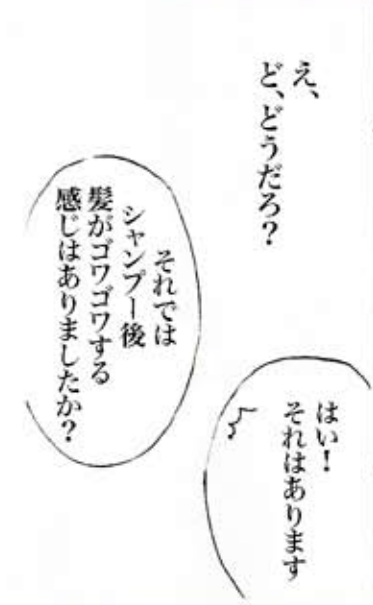 え、
ど、どうだろ？
それでは
シャンプー後
髪がゴワゴワする
感じはありましたか？
はい！
それはあります